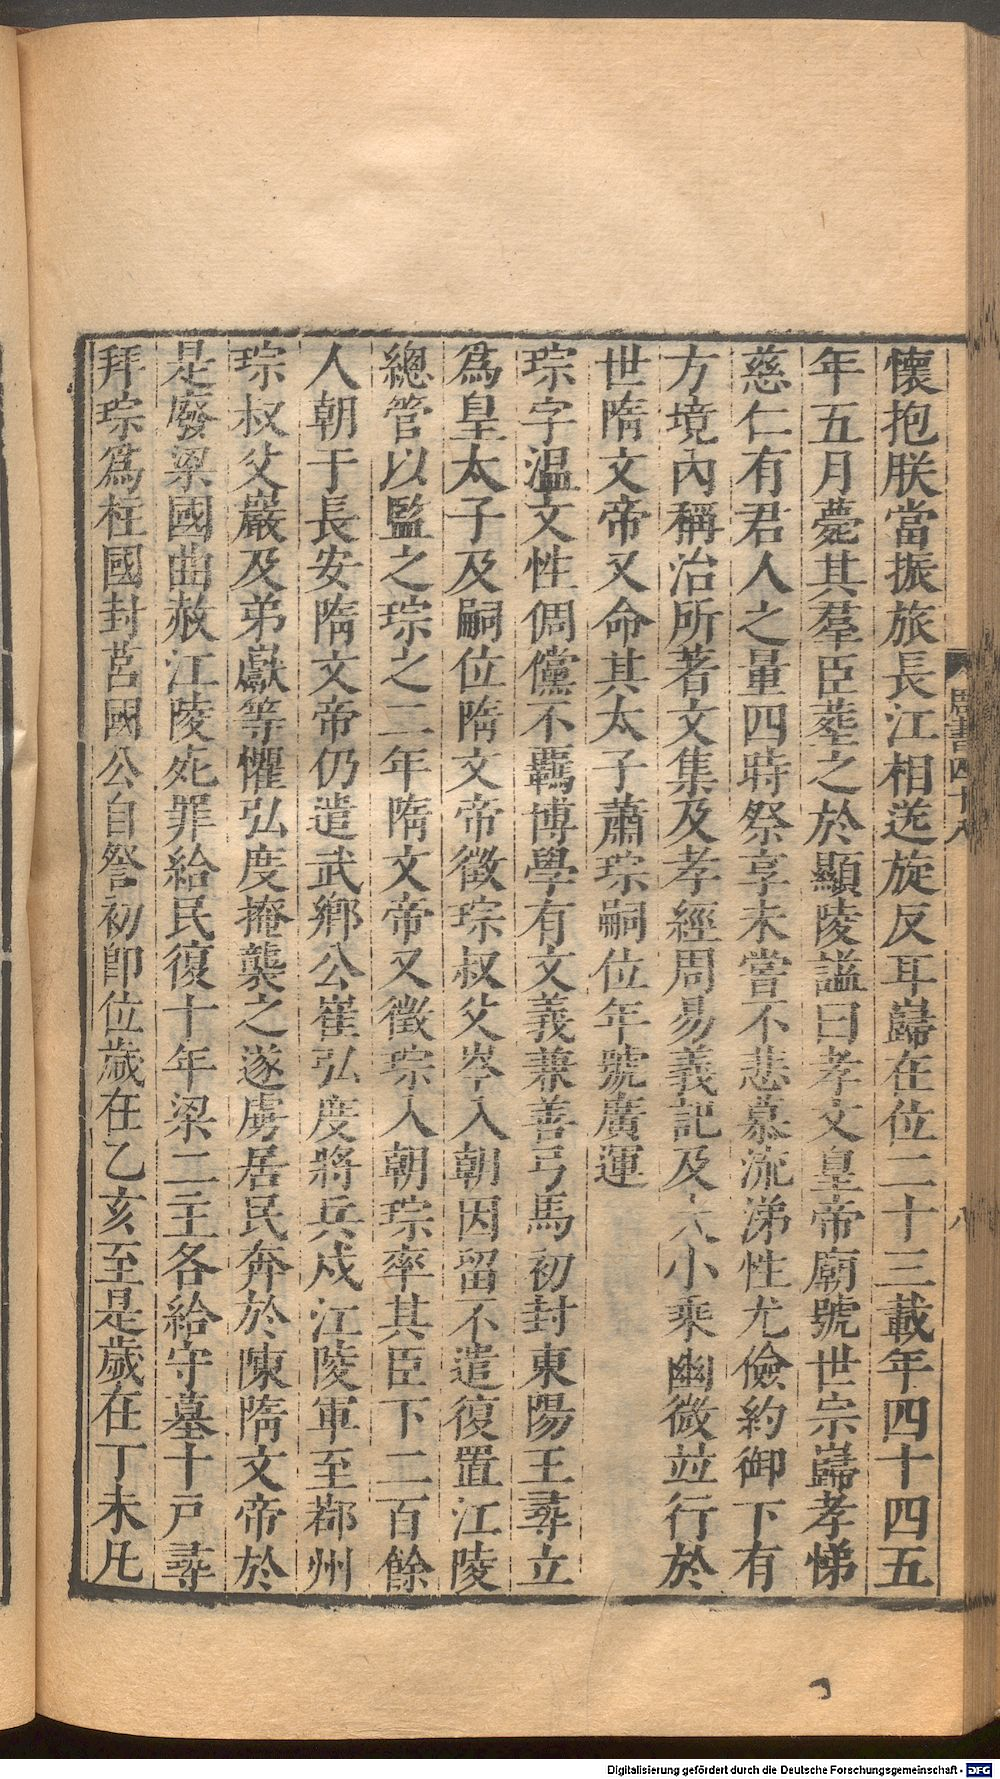 懷抱朕當振旅長江相送旋反耳巋在位二十三載年四十四五
年五月薨其羣臣葬之於顯陵謚曰孝文皇帝廟號世宗巋孝悌
慈仁有君人之量四時祭享未嘗不悲慕流涕性尤儉約御下有
方境內稱治所著文集及孝經周易義記及大小乘幽微竝行於
世隋文帝又命其太子蕭琮嗣位年號廣運
琮字溫文性倜儻不羈博學有文義兼善弓馬初封東陽王尋立
爲皇太子及嗣位隋文帝徵琮叔父岑入朝因留不遣復置江陵
總管以監之琮之二年隋文帝又徵琮入朝琮率其臣下二百餘
人朝于長安隋文帝仍遣武鄉公崔弘度將兵戍江陵軍至鄀州
琮叔父巖及弟巘等懼弘度掩襲之遂虜居民奔於陳隋文帝於
是廢梁國曲赦江陵死罪給民復十年梁二主各給守墓十戶尋
拜琮爲柱國封莒國公自詧初卽位歲在乙亥至是歲在丁未凡
周書四十八
八
Digitalisierung gefördert durch die Deutsche Forschungsgemeinschaft - DFG